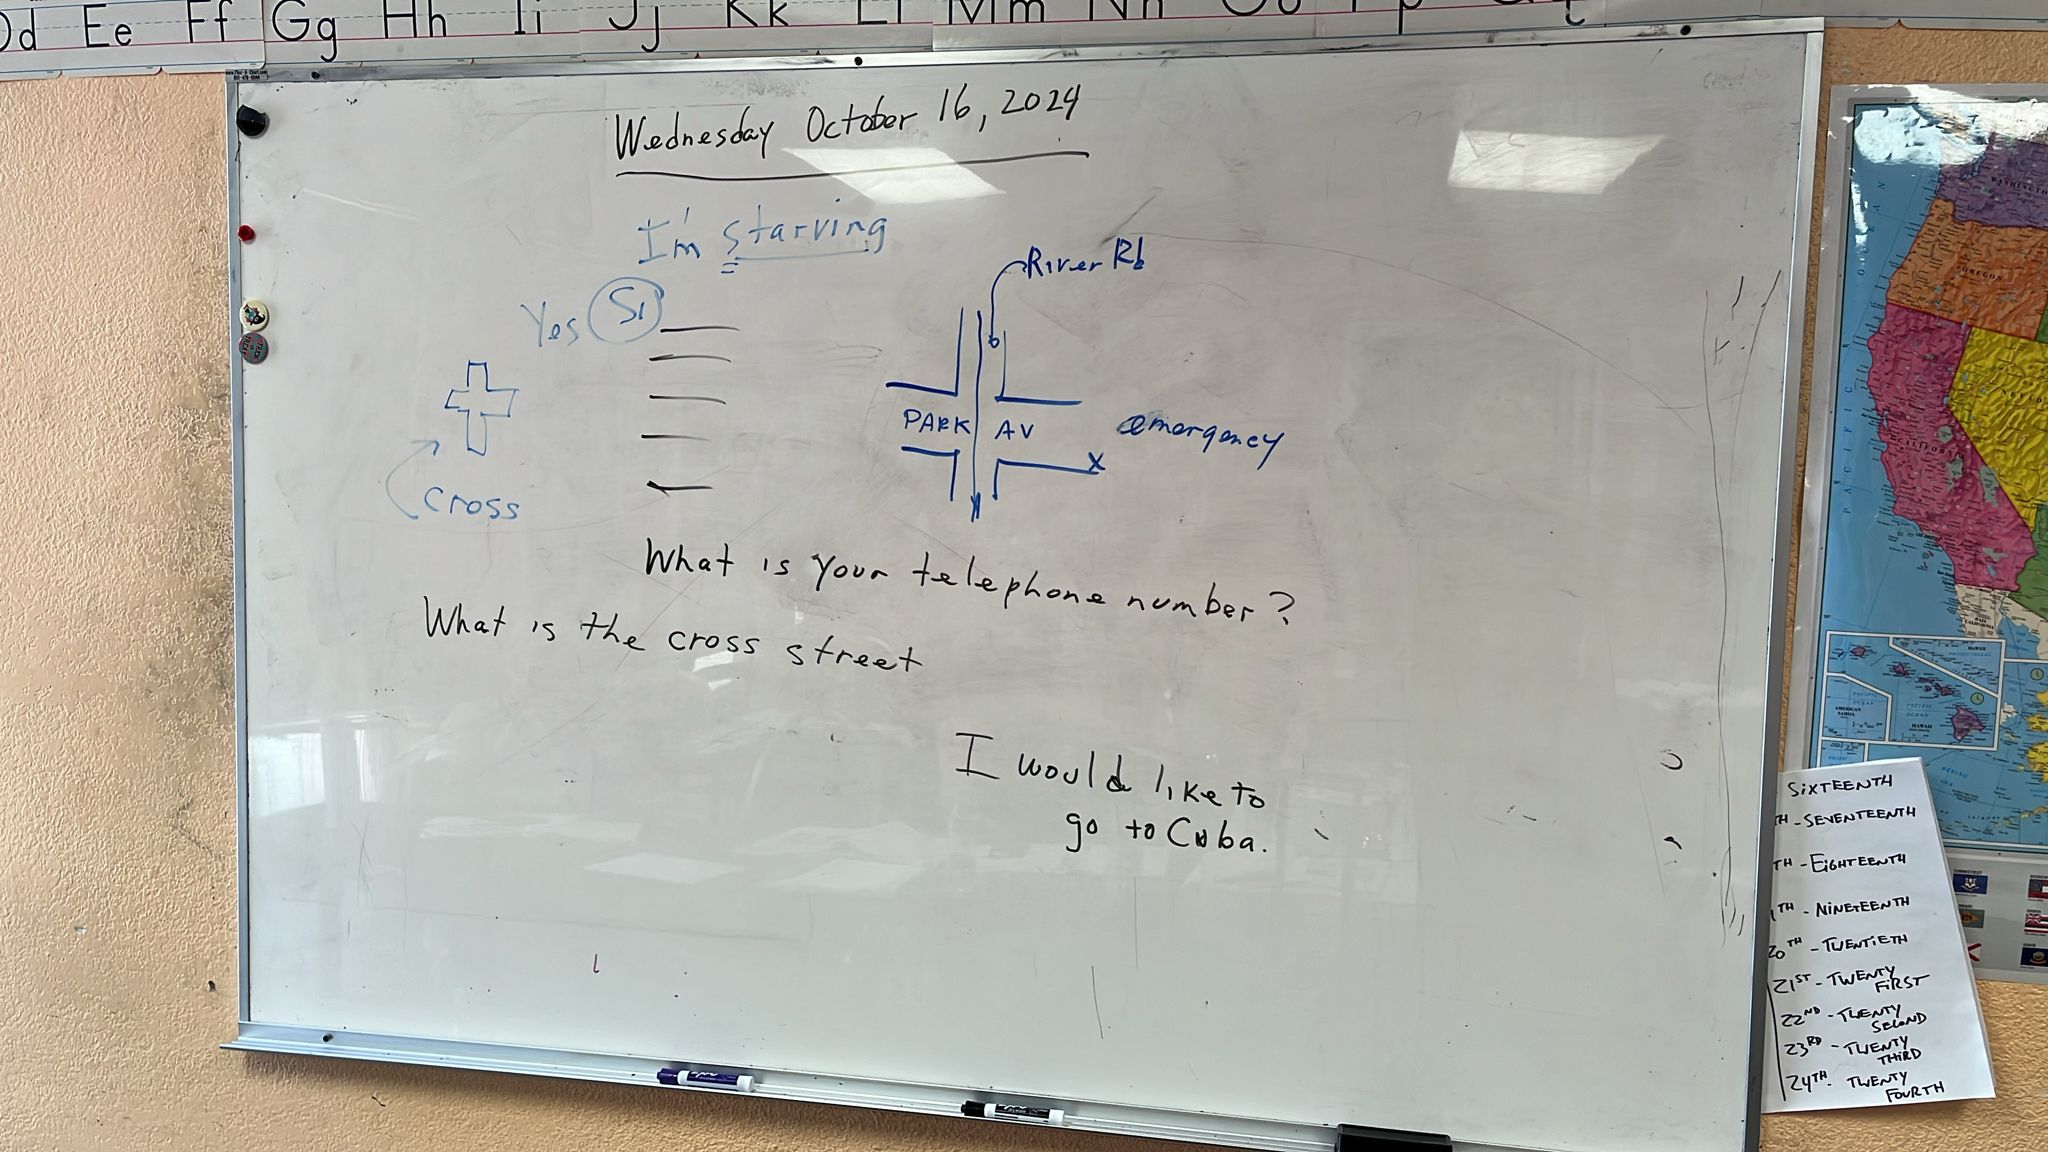 Dd Ee Ff Gg Hh Ii Jj Kk Ll Mm Nn Oo Pp
Wednesday October 16, 2024
I'm starving
Yes Si
River Rd
PARK AV
emergency
cross
What is your telephone number?
What is the cross street
I would like to
go to Cuba.
WASHINGTON
OREGON
CALIFORNIA
NEVADA
PACIFIC
HAWAII
AMERICAN
SAMOA
PACIFIC
OCEAN
HAWAII
SIXTEENTH
TH - SEVENTEENTH
TH - EIGHTEENTH
TH - NINETEENTH
20TH - TWENTIETH
21ST - TWENTY
FIRST
22ND - TWENTY
SECOND
23RD - TWENTY
THIRD
24TH - TWENTY
FOURTH